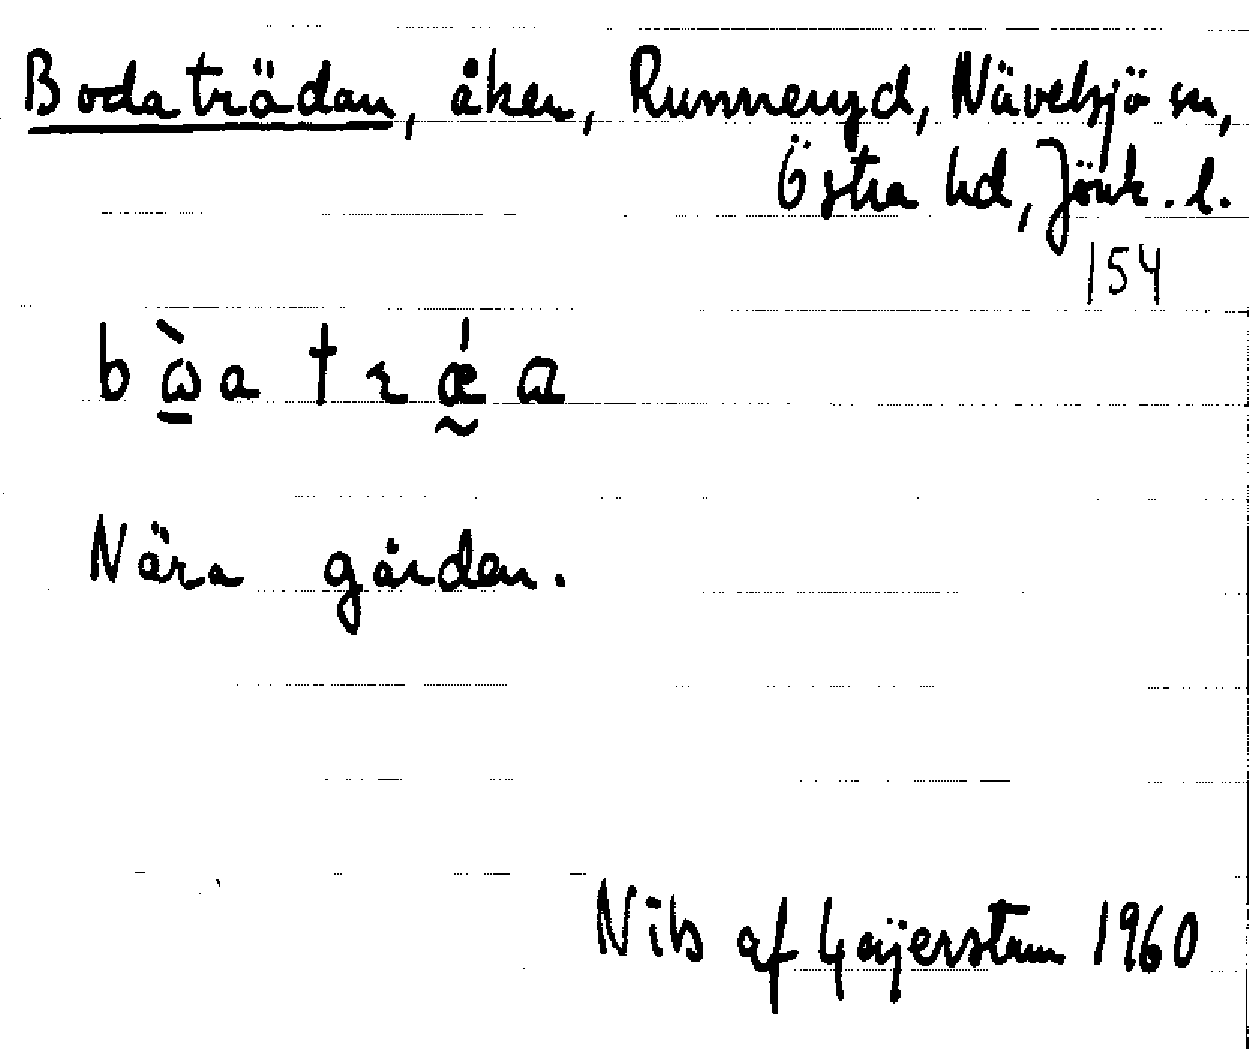 Bodaträdan, åker, Runneryd, Nävelsjö sn,
Östra hd, Jönk. l.
154
bɷ̠̀a trǽ̰ ɑ
Nära gården.
Nils af Geijerstam 1960